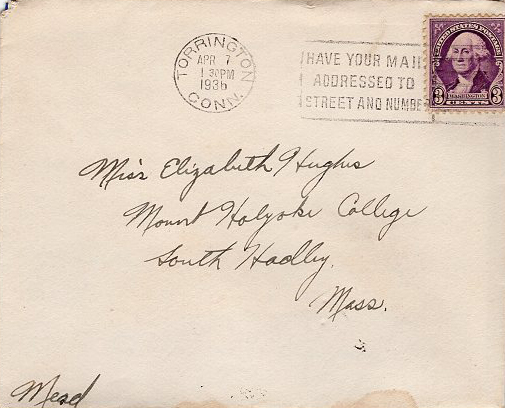 TORRINGTON
APR 7
1 30PM
1936
CONN.
HAVE YOUR MAIL
ADDRESSED TO
STREET AND NUMBE
UNITED STATES POSTAGE
3 WASHINGTON 3
CENTS
Miss Elizabeth Hughes
Mount Holyoke College
South Hadley.
Mass.
Mead